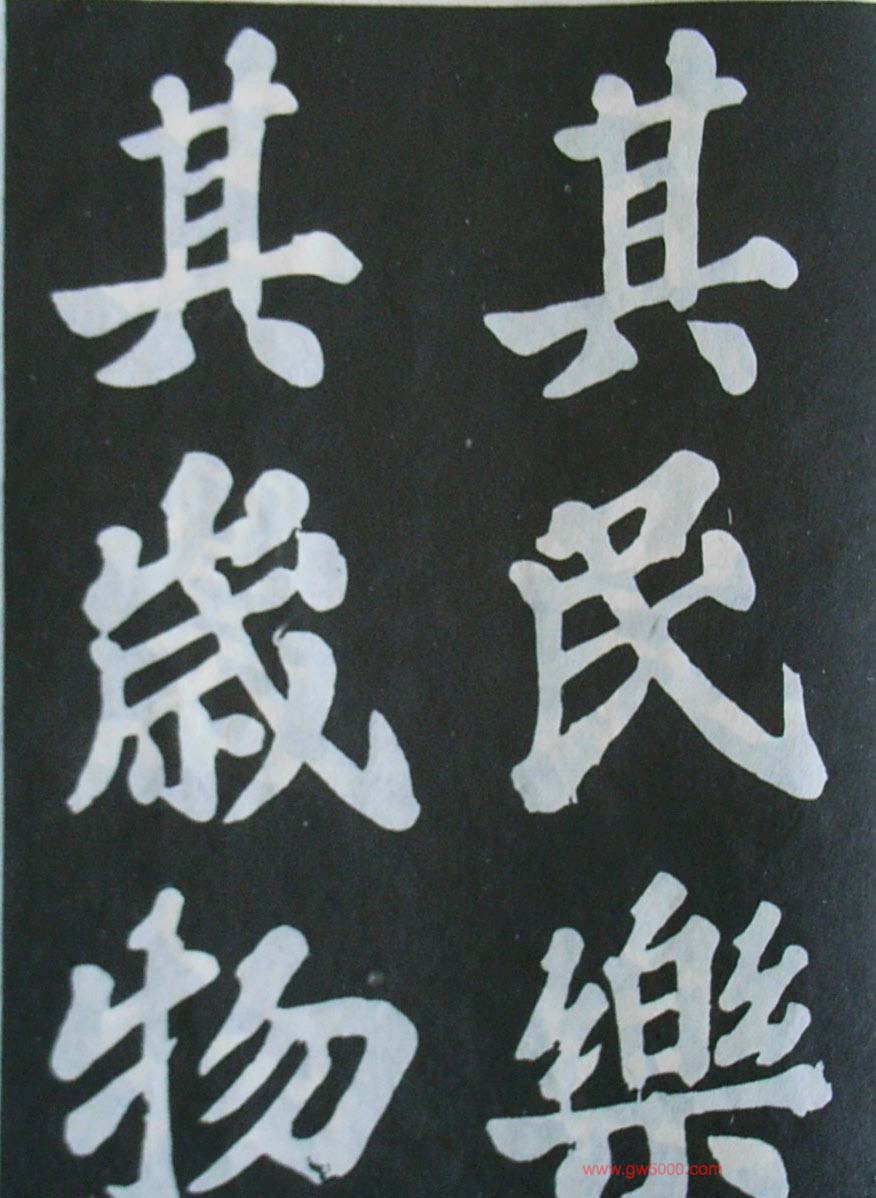 其民樂
其歲物
www.gw5000.com